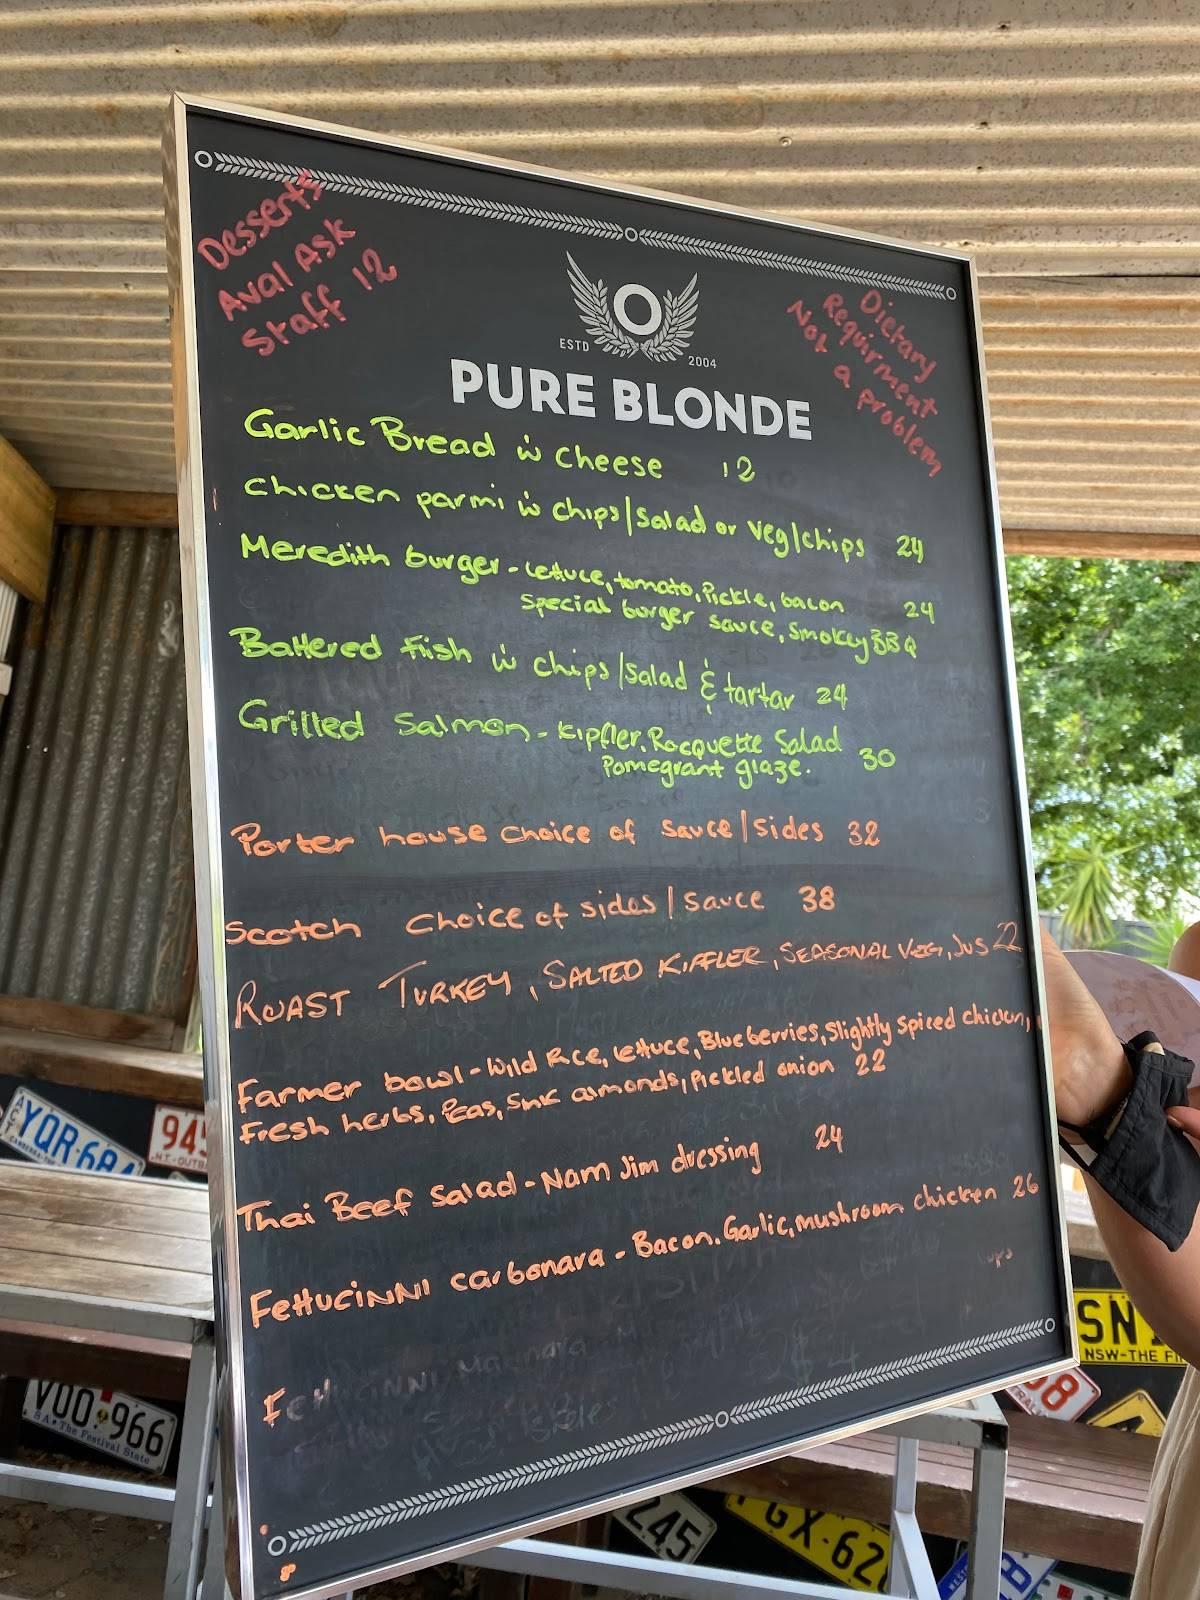 Desserts
Aval Ask
Staff 12
Dietary
Requirment
Not a problem
ESTD 2004
PURE BLONDE
Garlic Bread w cheese 12
Chicken parmi w chips/salad or veg/chips 24
Meredith burger - Lettuce, tomato, Pickle, bacon 24
special burger sauce, smokey BBQ
Battered Fish w chips/salad & tartar 24
Grilled Salmon - Kipfler, Rocquette Salad
Pomegrant glaze. 30
Porter house choice of sauce/sides 32
Scotch choice of sides/sauce 38
ROAST TURKEY, SALTED KIFFLER, SEASONAL VEG, JUS 22
Farmer bowl - Wild Rice, lettuce, Blueberries, slightly spiced chicken,
Fresh herbs, Peas, almonds, Pickled onion 22
Thai Beef salad - Nam Jim dressing 24
Fettucinni carbonara - Bacon. Garlic, mushroom chicken 26
Fettucinni Marinara
YQR·68
945
N.T.-OUTB
V00·966
SA·The Festival State
SN
NSW-THE FI
8
245
GX·62
8